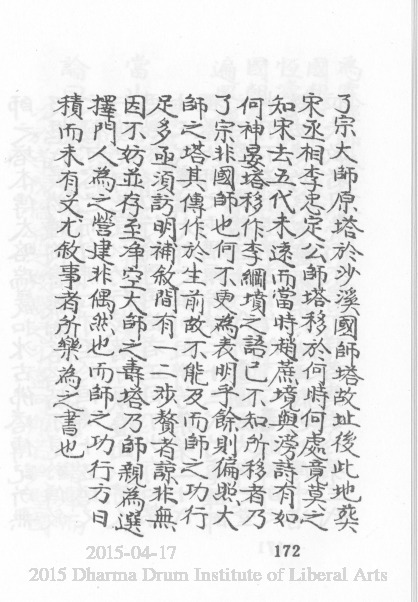 了宗大師原塔於沙溪國師塔故址後此地葬
宋丞相李忠定公師塔移於何時何處竟莫之
知宋去五代未遠而當時稍蔗境與滂詩有如
何神晏塔移作李綱墳之語已不知所移者乃
了宗非國師也何不更為表明乎餘則偏照大
師之塔其傳作於生前故不能及而師之功行
足多亟須訪明補敘間有一二涉贅者諒非無
因不妨並存至淨空大師之壽塔乃師親為選
擇門人為之營建非偶然也而師之功行方日
積而未有文尤敘事者所樂為之書也
172
2015-04-17
2015 Dharma Drum Institute of Liberal Arts